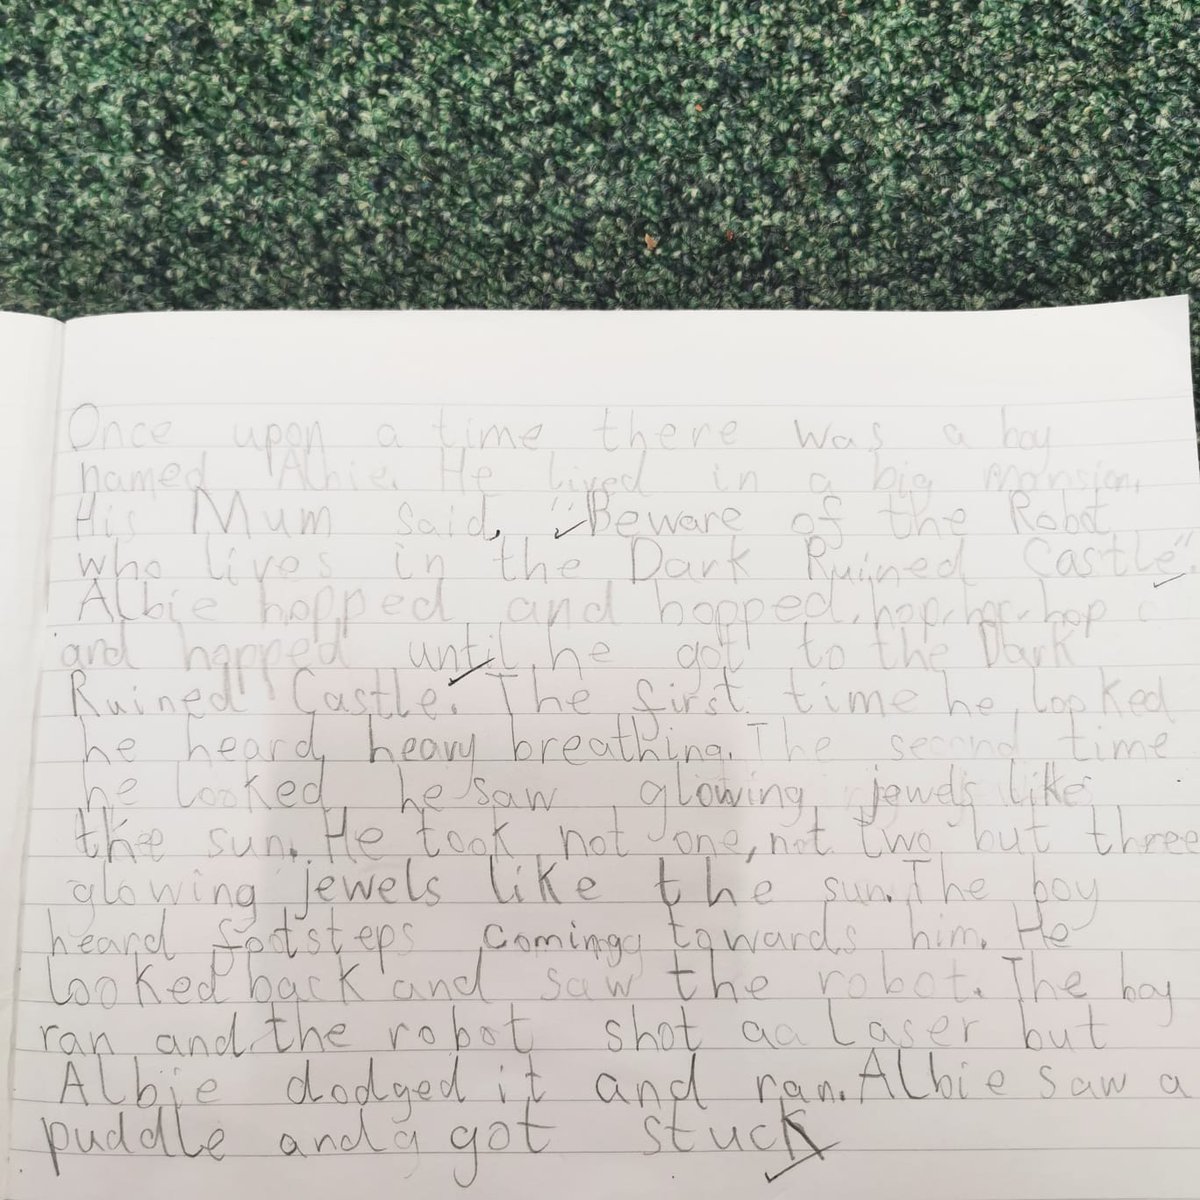 Once upon a time there was a boy
named Albie. He lived in a big mansion.
His Mum said, "Beware of the Robot
who lives in the Dark Ruined Castle".
Albie hopped and hopped, hop, hop, hop
and hopped until he got to the Dark
Ruined Castle. The first time he looked
he heard heavy breathing. The second time
he looked he saw glowing jewels like
the sun. He took not one, not two but three
glowing jewels like the sun. The boy
heard footsteps coming towards him. He
looked back and saw the robot. The boy
ran and the robot shot a laser but
Albie dodged it and ran. Albie saw a
puddle and got stuck